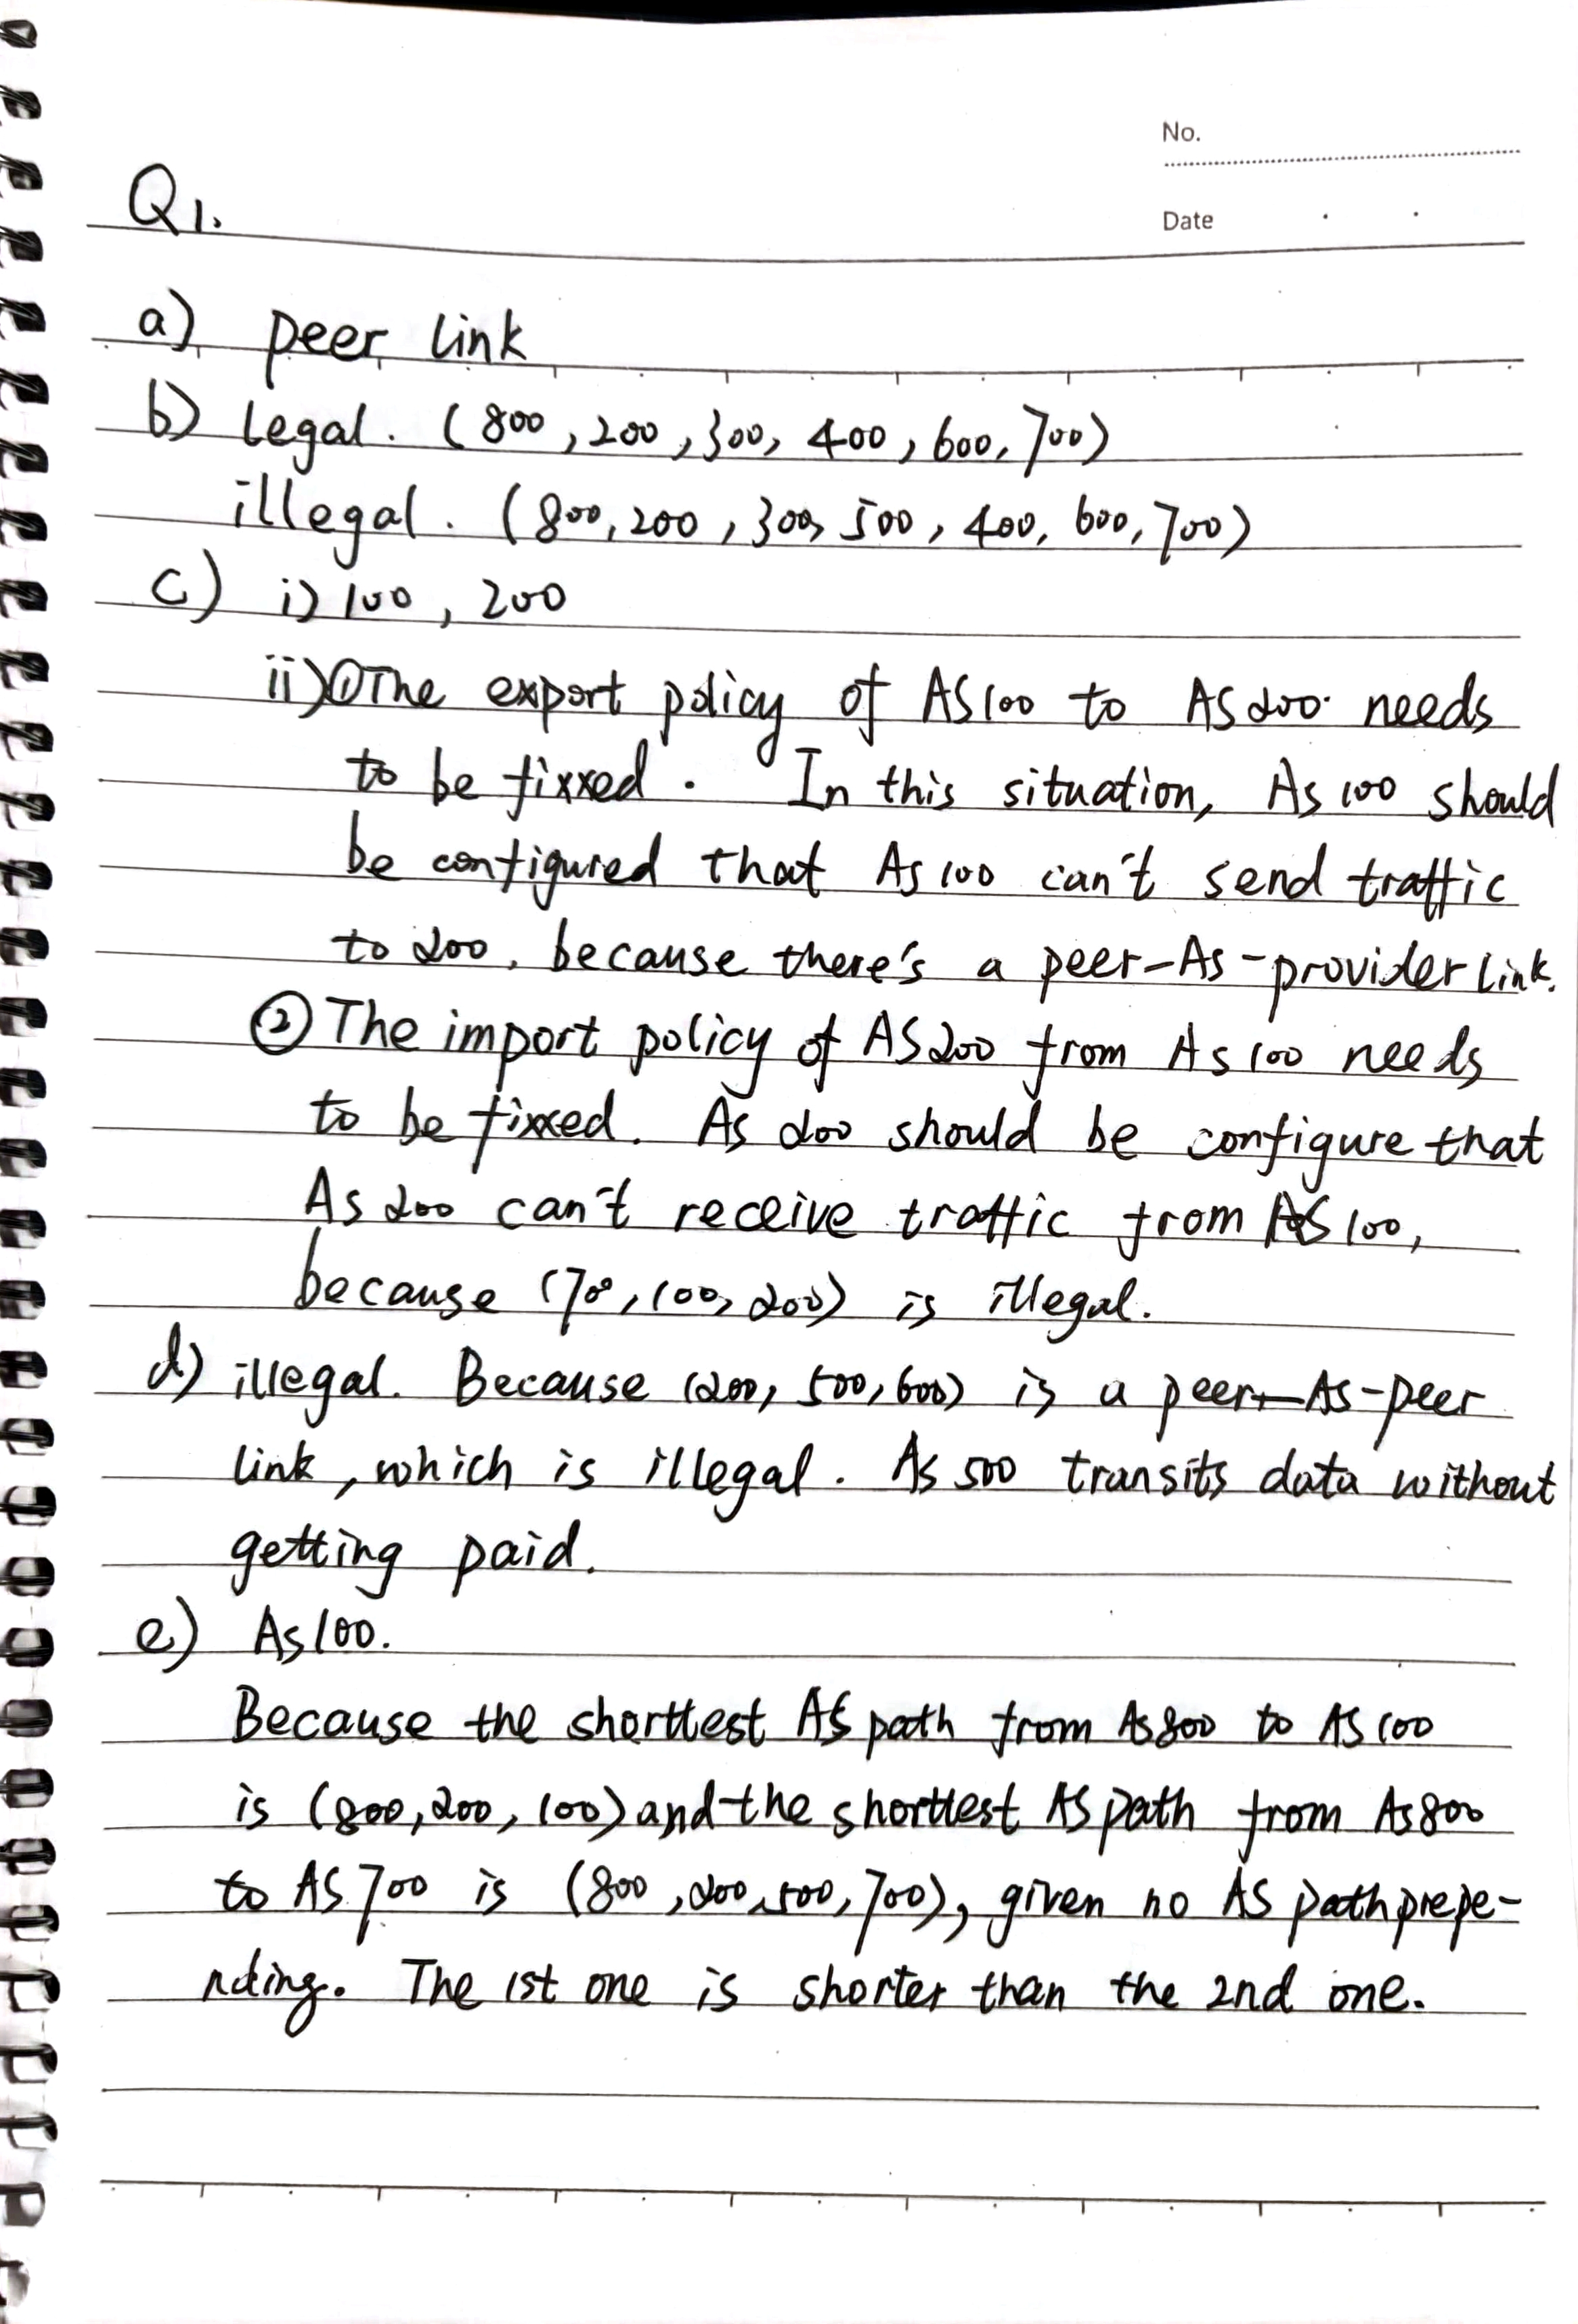 No.
Date
Q1.
a) peer link
b) legal. (800, 200, 300, 400, 600, 700)
illegal. (800, 200, 300, 500, 400, 600, 700)
c) i) 100, 200
ii) ① The export policy of AS100 to AS200 needs
to be fixxed. In this situation, As 100 should
be configured that As 100 can't send traffic
to 200, because there's a peer-As-provider link.
② The import policy of AS200 from As 100 needs
to be fixxed. As 200 should be configure that
As 200 can't receive traffic from AS 100,
because (700, 100, 200) is illegal.
d) illegal. Because (200, 500, 600) is a peer-As-peer
link, which is illegal. As 500 transits data without
getting paid.
e) As100.
Because the shorttest AS path from As800 to AS100
is (800, 200, 100) and the shorttest AS path from As800
to AS700 is (800, 200, 500, 700), given no AS path prepe-
nding. The 1st one is shorter than the 2nd one.